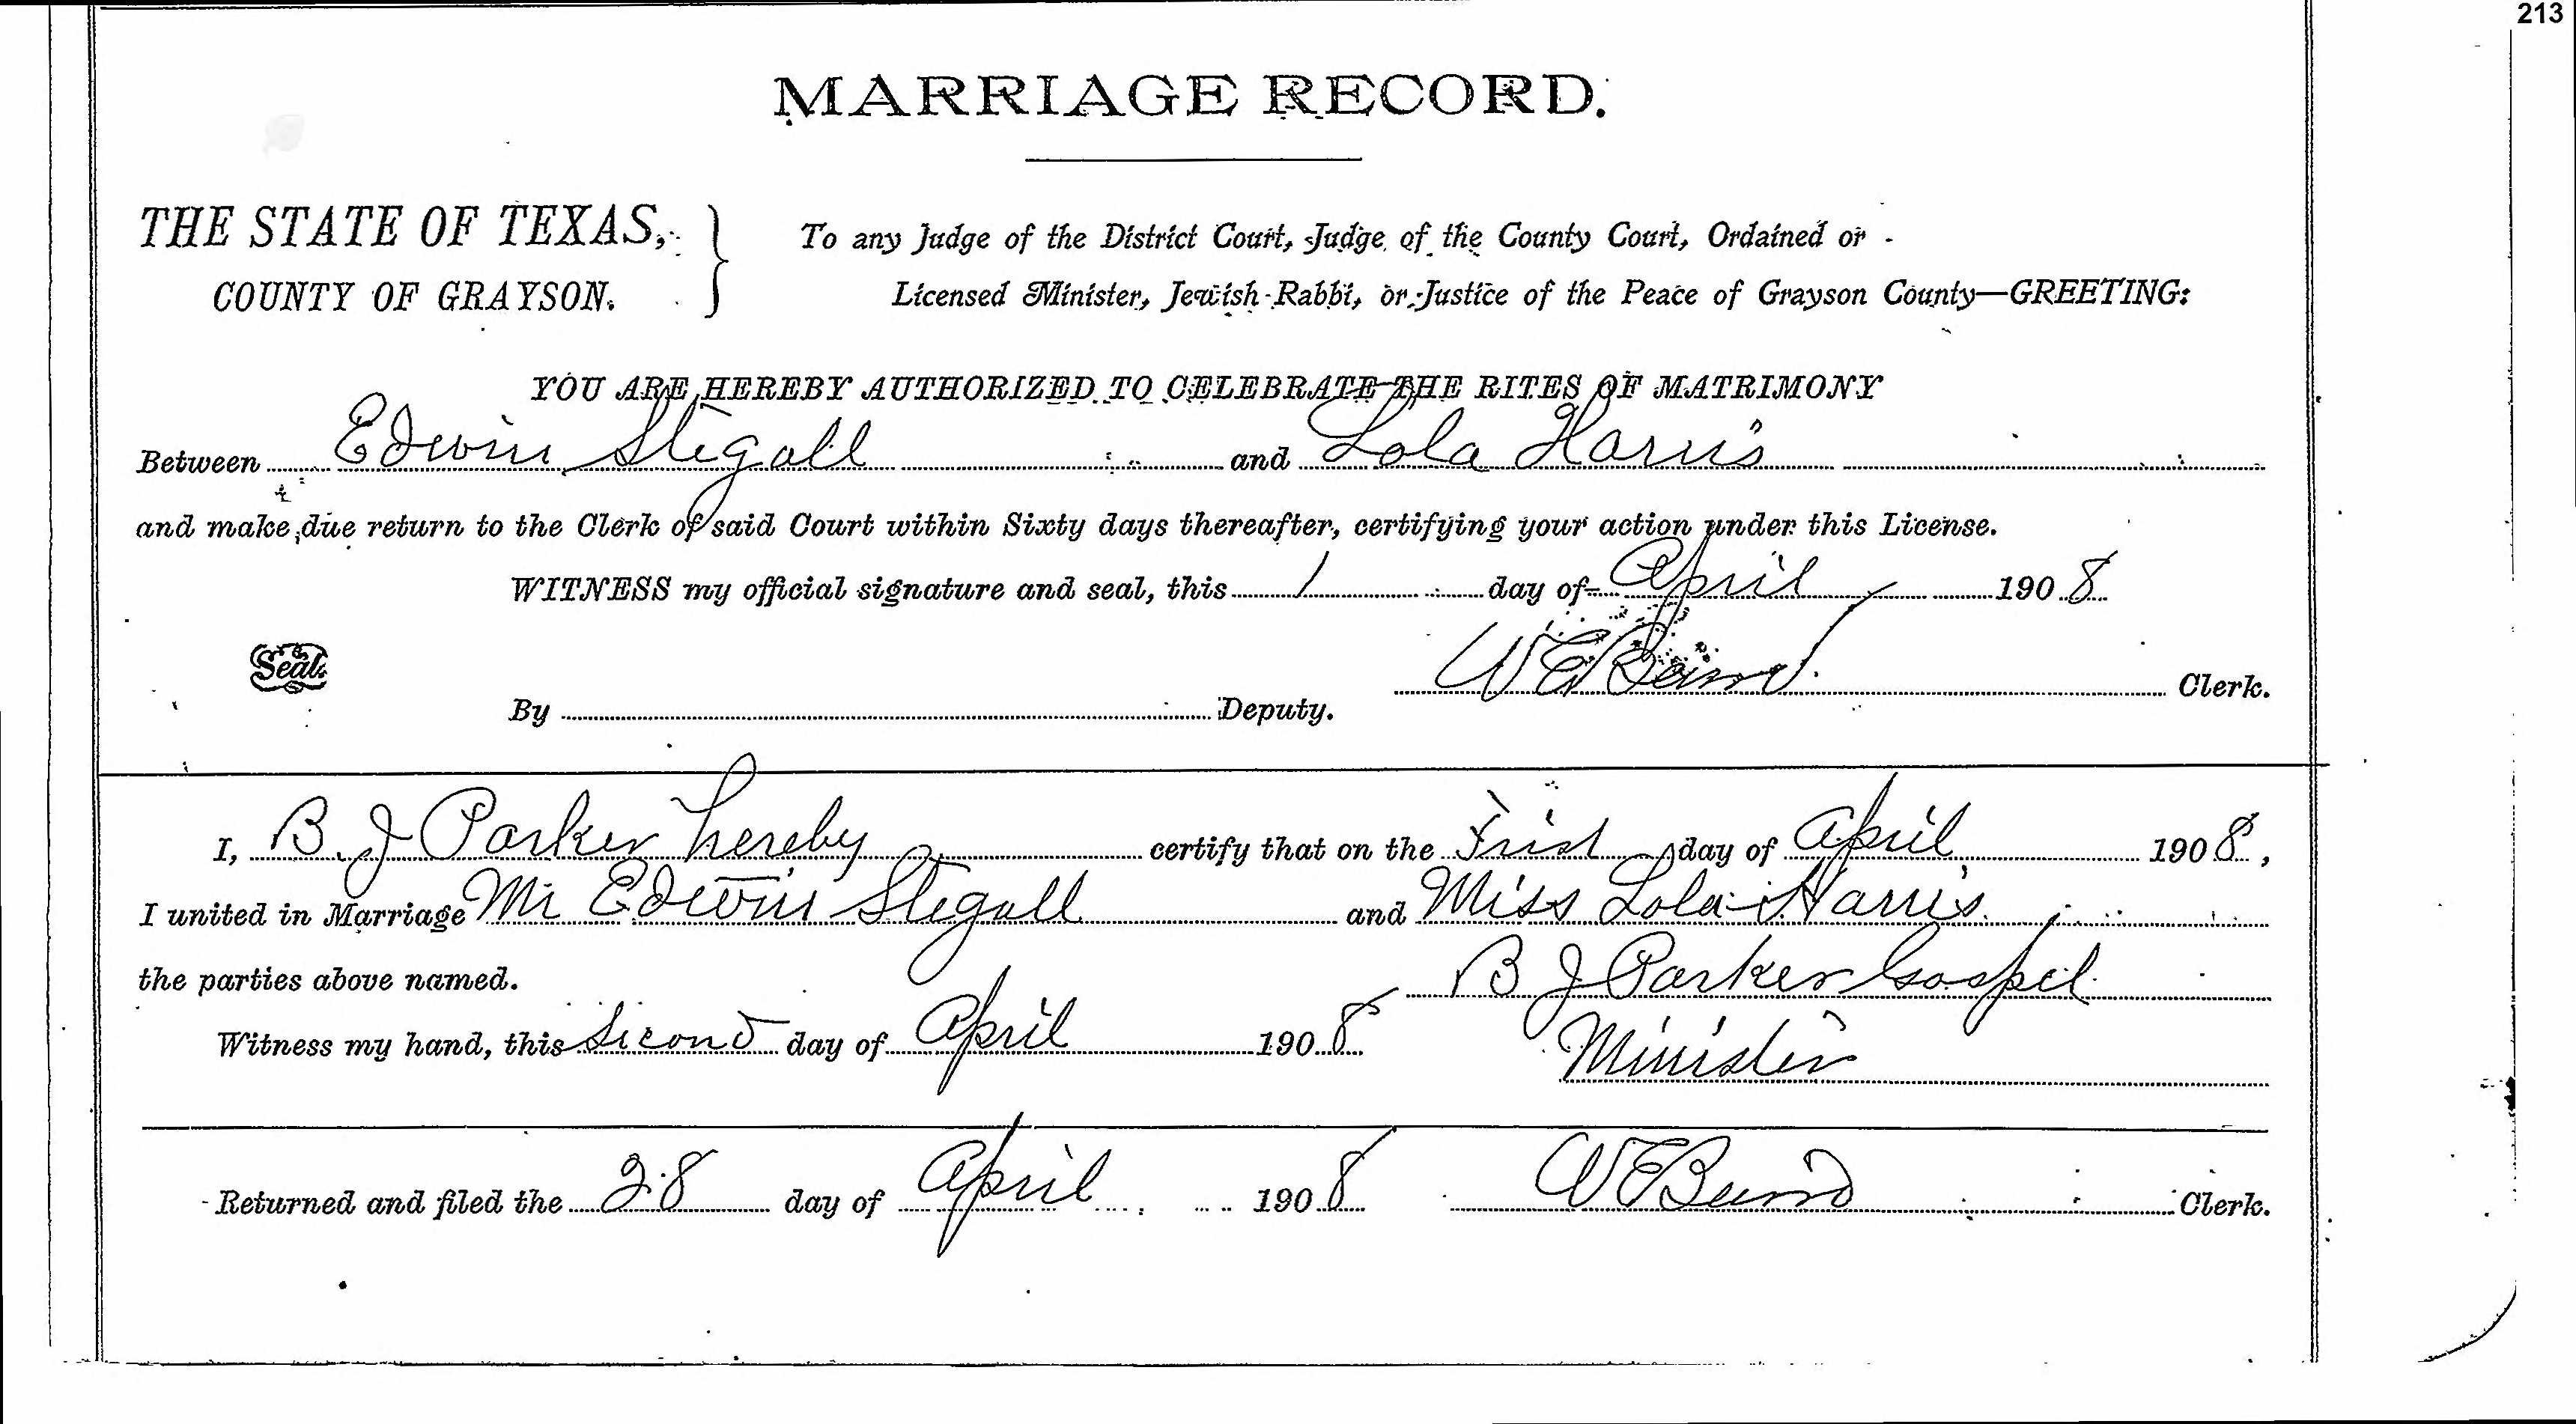 213
MARRIAGE RECORD.
THE STATE OF TEXAS,
COUNTY OF GRAYSON.
To any Judge of the District Court, Judge of the County Court, Ordained or
Licensed Minister, Jewish Rabbi, or Justice of the Peace of Grayson County—GREETING:
YOU ARE HEREBY AUTHORIZED TO CELEBRATE THE RITES OF MATRIMONY
Between Edwin Stegall and Lola Harris
and make due return to the Clerk of said Court within Sixty days thereafter, certifying your action under this License.
WITNESS my official signature and seal, this 1 day of April 1908
Seal.
W E Clerk.
By Deputy.
I, B. J Parker hereby certify that on the Frist day of April 1908,
I united in Marriage Mr Edwin Stegall and Miss Lola Harris
the parties above named.
B J Parker Gospel
Witness my hand, this Second day of April 1908
Minister
Returned and filed the 28 day of April 1908 W E Clerk.